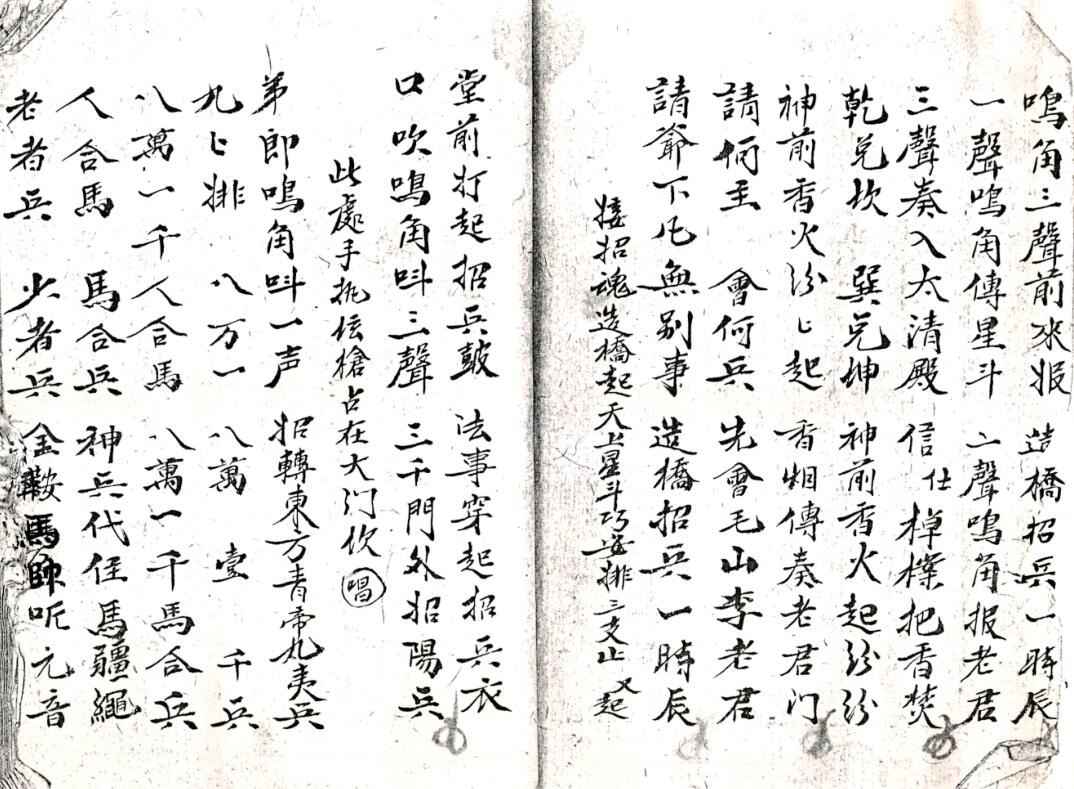 鳴角三聲前來报 造橋招兵一時辰
一聲鳴角傳星斗 二聲鳴角报老君
三聲奏入太清殿 信仕棹檪把香焚
乾兑坎 巽兑坤 神前香火起纷纷
神前香火汾〻起 香烟傳奏老君门
請何王 會何兵 先會毛山李老君
請爺下凡無别事 造橋招兵一時辰
接招魂造橋起天上星斗巧安排三支止又起
堂前打起招兵鼓 法事穿起招兵衣
口吹鳴角呌三聲 三千門外招陽兵
此處手执坛槍占在大门吹 唱
弟郎鳴角呌一声 招轉東方青帝九夷兵
九〻排 八万一 八萬壹千兵
八萬一千人合馬 八萬一千馬合兵
人合馬 馬合兵 神兵代侄馬疆繩
老者兵 少者兵 金鞍馬師呢元音